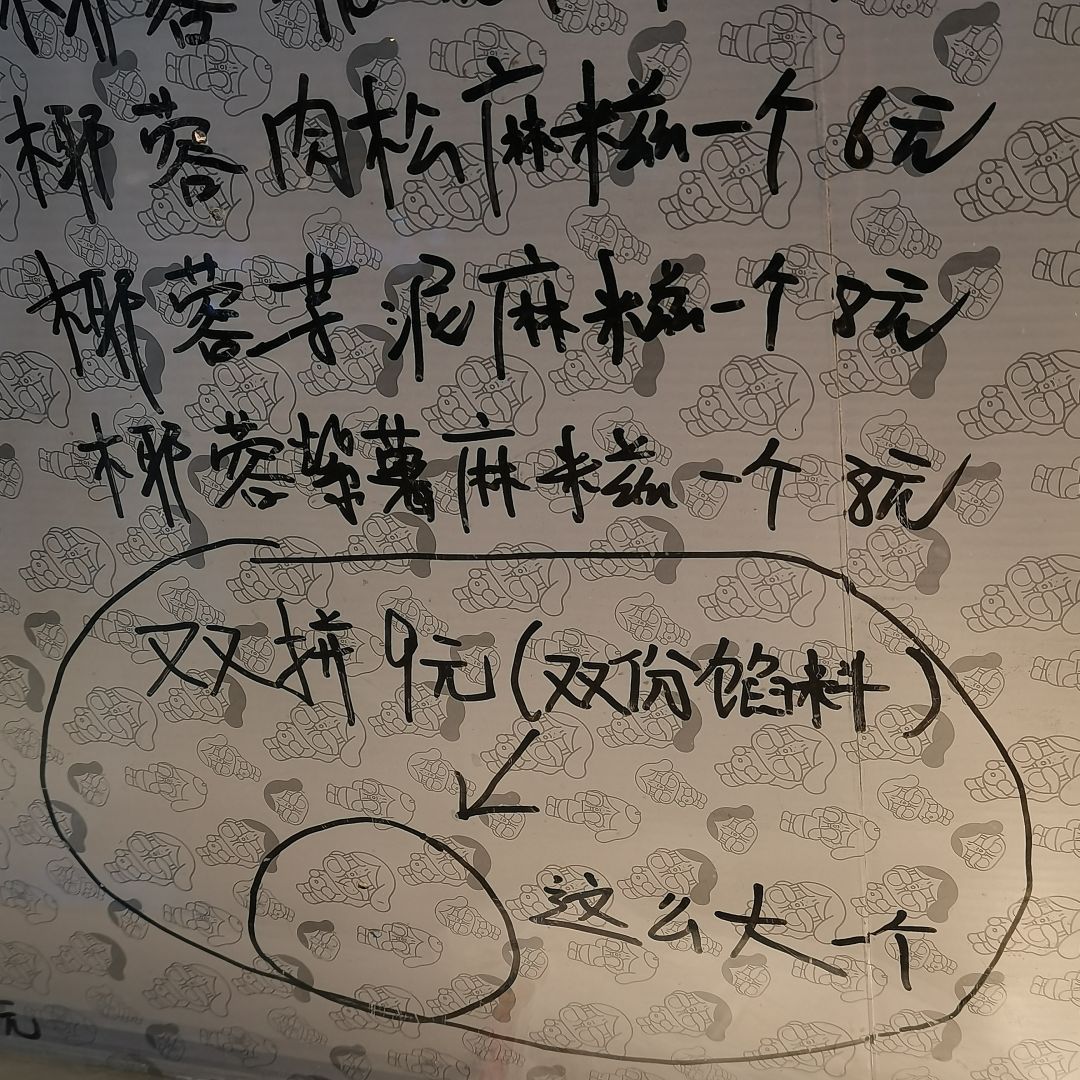 椰蓉
椰蓉肉松麻糍一个 6元
椰蓉芋泥麻糍一个 8元
椰蓉紫薯麻糍一个 8元
双拼9元(双份馅料)
这么大一个
元